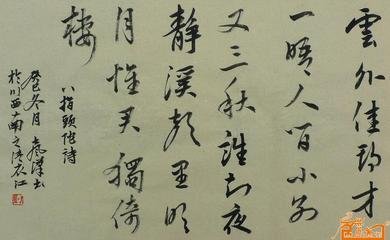 雲外佳期才
一晤人間小別
又三秋誰知夜
靜溪里明
月惟君獨倚
樓
八指頭陀詩
癸巳冬月書
於川西南之清衣江